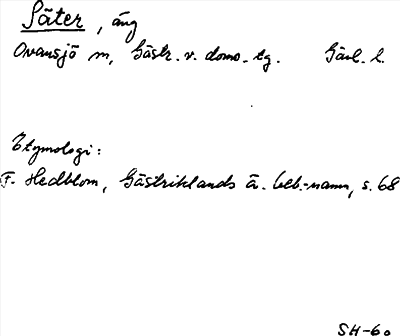 Säter, äng
Ovansjö sn, Gästr. v. doms.-tg. Gävl. l.
Etymologi:
F. Hedblom, Gästriklands ä. beb.-namn, s. 68
SH-60